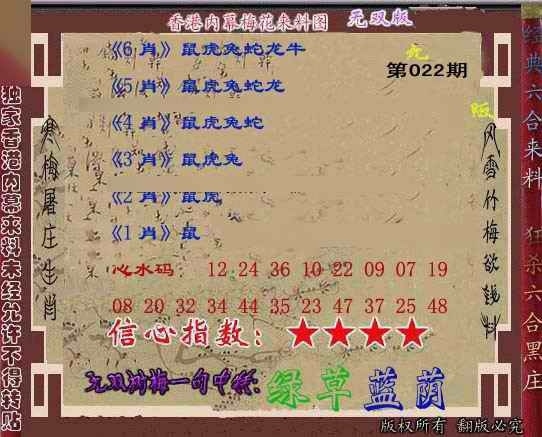 香港内幕梅花来料图 无双版
《6 肖》鼠虎兔蛇龙牛
第022期
《5 肖》鼠虎兔蛇龙
《4 肖》鼠虎兔蛇
《3 肖》鼠虎兔
《2 肖》鼠虎
《1 肖》鼠
心水码: 12 24 36 10 22 09 07 19
08 20 32 34 44 35 23 47 37 25 48
信心指数: ★★★★
一句中特: 绿草 蓝荫
版权所有 翻版必究
独家香港内幕来料未经允许不得转贴
寒梅屠庄生肖
风雪竹梅欲钱料
经典六合来料 狂杀六合黑庄